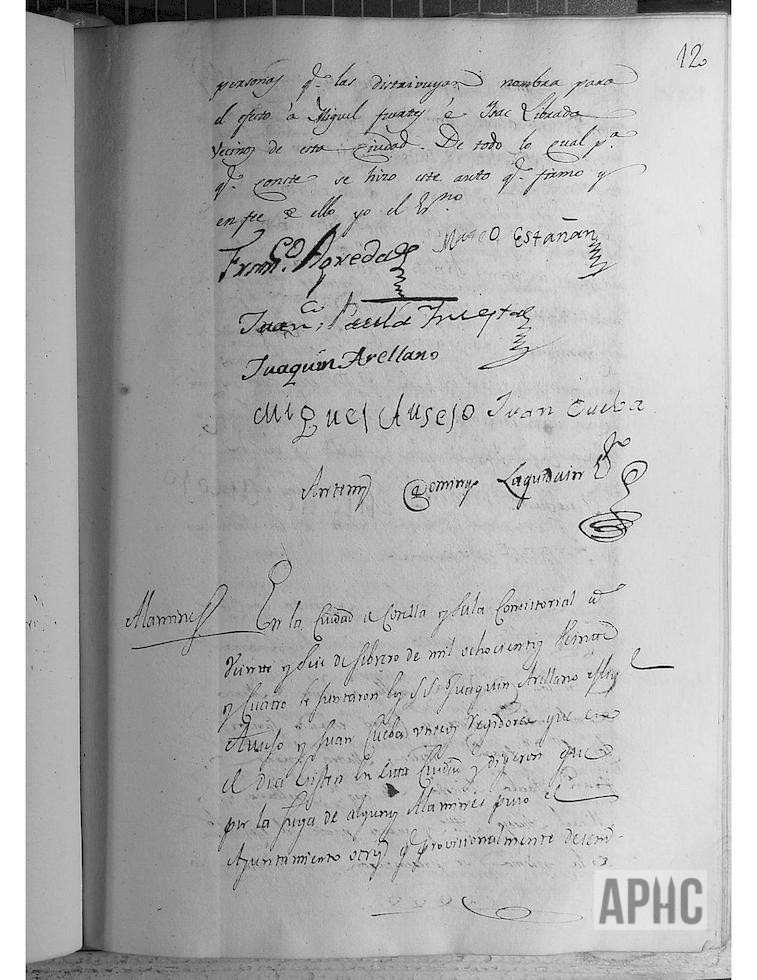 12
personas q.e las distrivuyan nombra para
el efecto á Miguel fuertes é Isac Librada
Vecinos de esta Ciudad. De todo lo cual p.a
q.e conste se hizo este auto q.e firmo y
en fee de ello yo el Es.no
Fran.co Agreda Mateo Estañan
Juan Paula
Juaquin Arellano
Miguel Ausejo Juan Cueba
Antemi Domingo Laquidain Es.no
Alamines
En la Ciudad de Corella y Sala Consistorial a
Veinte y Seis de febrero de mil ochocientos Veinte
y Cuatro se juntaron los SS. Juaquin Arellano Mig.l
Ausejo y Juan Cueba unicos Regidores que en
el dia existen en esta Ciudad y digeron que
por la fuga de algunos Alamines puso el
Ayuntamiento otros q.e provisionalmente
APHC